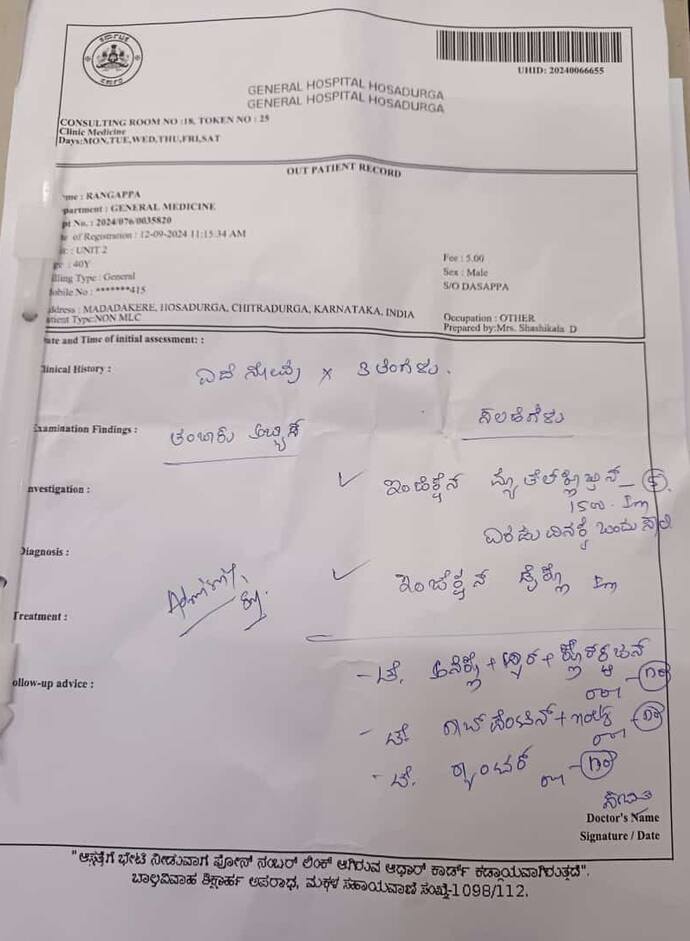 UHID: 20240066655
GENERAL HOSPITAL HOSADURGA
GENERAL HOSPITAL HOSADURGA
CONSULTING ROOM NO :18, TOKEN NO : 25
Clinic Medicine
Days:MON,TUE,WED,THU,FRI,SAT
OUT PATIENT RECORD
me : RANGAPPA
partment : GENERAL MEDICINE
pt No. : 2024/076/0035820
e of Registration : 12-09-2024 11:15:34 AM
: UNIT 2
: 40Y
lling Type : General
obile No : *******415
Fee : 5.00
Sex : Male
S/O DASAPPA
ddress : MADADAKERE, HOSADURGA, CHITRADURGA, KARNATAKA, INDIA
tient Type:NON MLC
Occupation : OTHER
Prepared by:Mrs. Shashikala D
ate and Time of initial assessment: :
linical History :
ಎದೆ ನೋವು x 3 ತಿಂಗಳು.
Examination Findings :
ತಂಬಾಕು
ಸಲಹೆಗಳು
nvestigation :
ಇಂಜೆಕ್ಷನ್
Im
ಎರಡು ದಿನಕ್ಕೆ ಒಂದು ಸಾರಿ
Diagnosis :
ಇಂಜೆಕ್ಷನ್ ಡೈಕ್ಲೊ Im
Treatment :
ollow-up advice :
- ಟೆ.
- ಟೆ.
- ಟೆ.
Doctor's Name
Signature / Date
"ಆಸ್ಪತ್ರೆಗೆ ಭೇಟಿ ನೀಡುವಾಗ ಫೋನ್ ನಂಬರ್ ಲಿಂಕ್ ಆಗಿರುವ ಆಧಾರ್ ಕಾರ್ಡ್ ಕಡ್ಡಾಯವಾಗಿರುತ್ತದೆ".
ಬಾಲ್ಯವಿವಾಹ ಶಿಕ್ಷಾರ್ಹ ಅಪರಾಧ, ಮಕ್ಕಳ ಸಹಾಯವಾಣಿ ಸಂಖ್ಯೆ-1098/112.